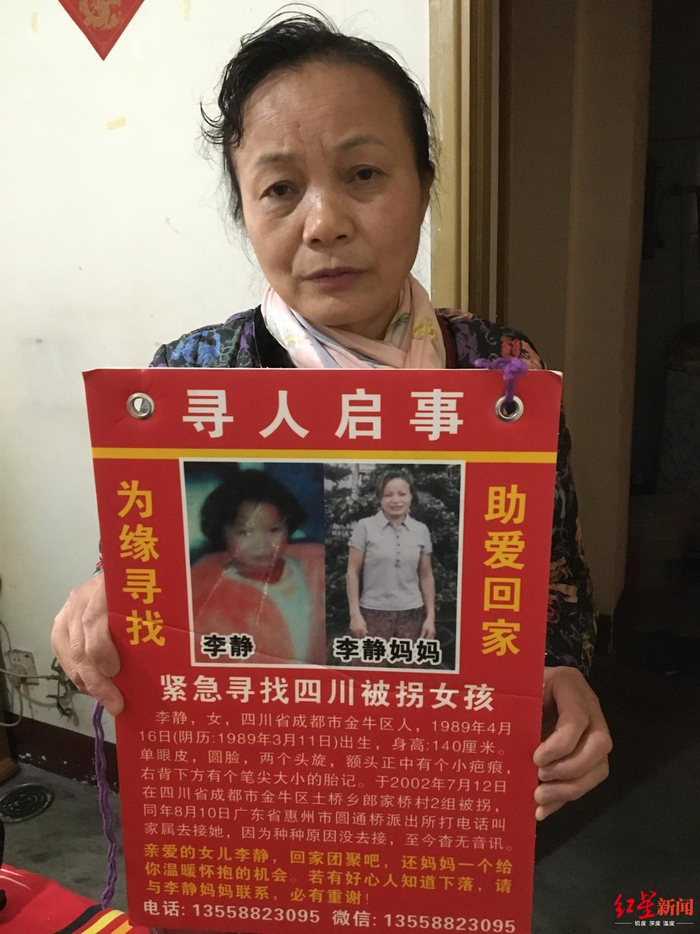 寻人启事
为缘寻找
助爱回家
李静
李静妈妈
紧急寻找四川被拐女孩
李静，女，四川省成都市金牛区人，1989年4月
16日(阴历:1989年3月11日)出生，身高:140厘米。
单眼皮，圆脸，两个头旋，额头正中有个小疤痕，
右背下方有个笔尖大小的胎记。于2002年7月12日
在四川省成都市金牛区土桥乡郎家桥村2组被拐，
同年8月10日广东省惠州市圆通桥派出所打电话叫
家属去接她，因为种种原因没去接，至今杳无音讯。
亲爱的女儿李静，回家团聚吧，还妈妈一个给
你温暖怀抱的机会。若有好心人知道下落，请
与李静妈妈联系，必有重谢!
电话: 13558823095 微信: 13558823095
红星新闻
锐度 深度 温度